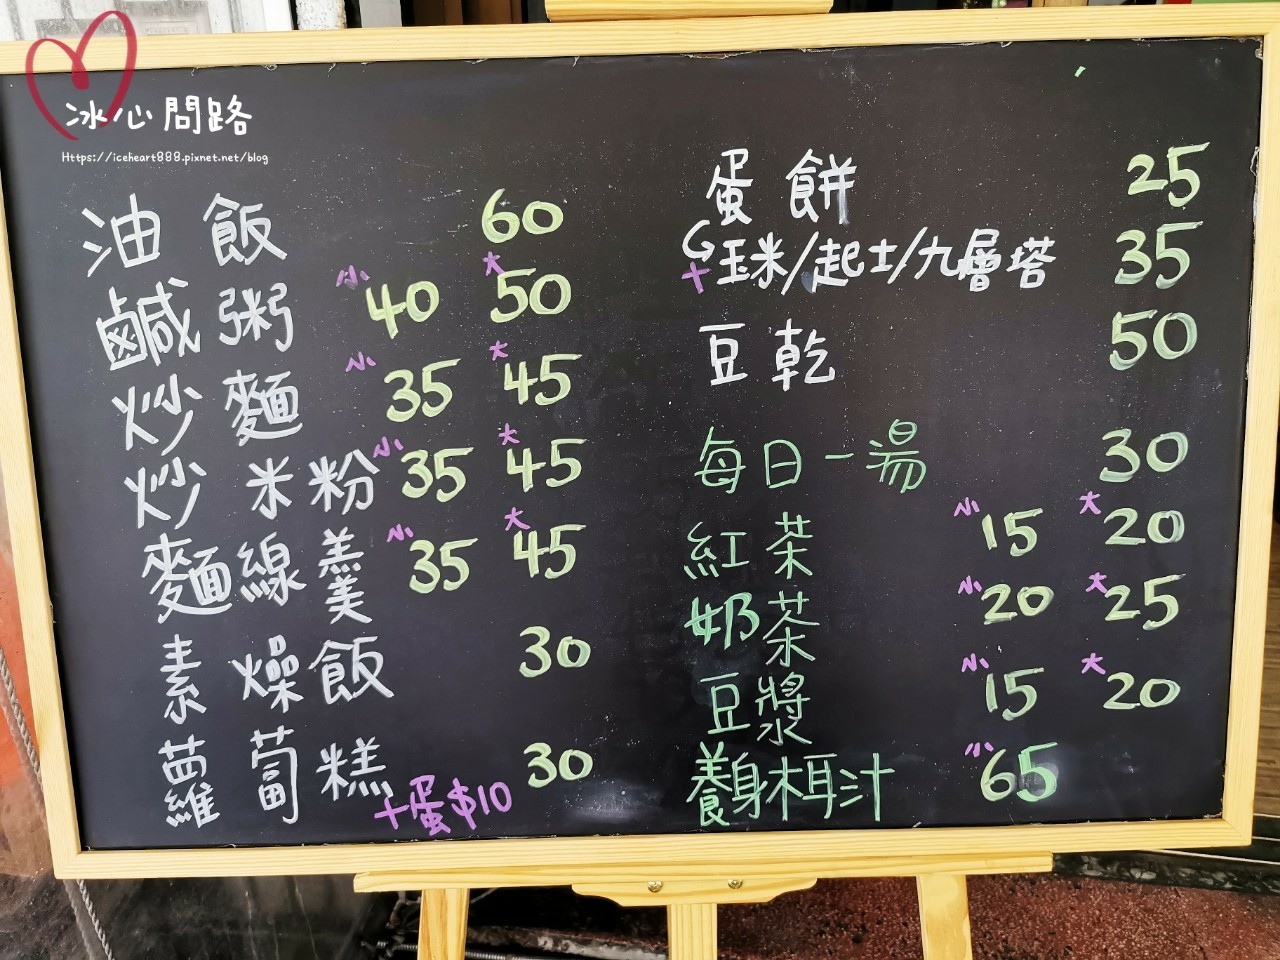 冰心問路
Https://iceheart888.pixnet.net/blog
油飯 60
鹹粥 小 40 大 50
炒麵 小 35 大 45
炒米粉 小 35 大 45
麵線羹 小 35 大 45
素燥飯 30
蘿蔔糕 30
+蛋$10
蛋餅 25
+玉米/起士/九層塔 35
豆乾 50
每日一湯 30
紅茶 小 15 大 20
奶茶 小 20 大 25
豆漿 小 15 大 20
養身木耳汁 小 65